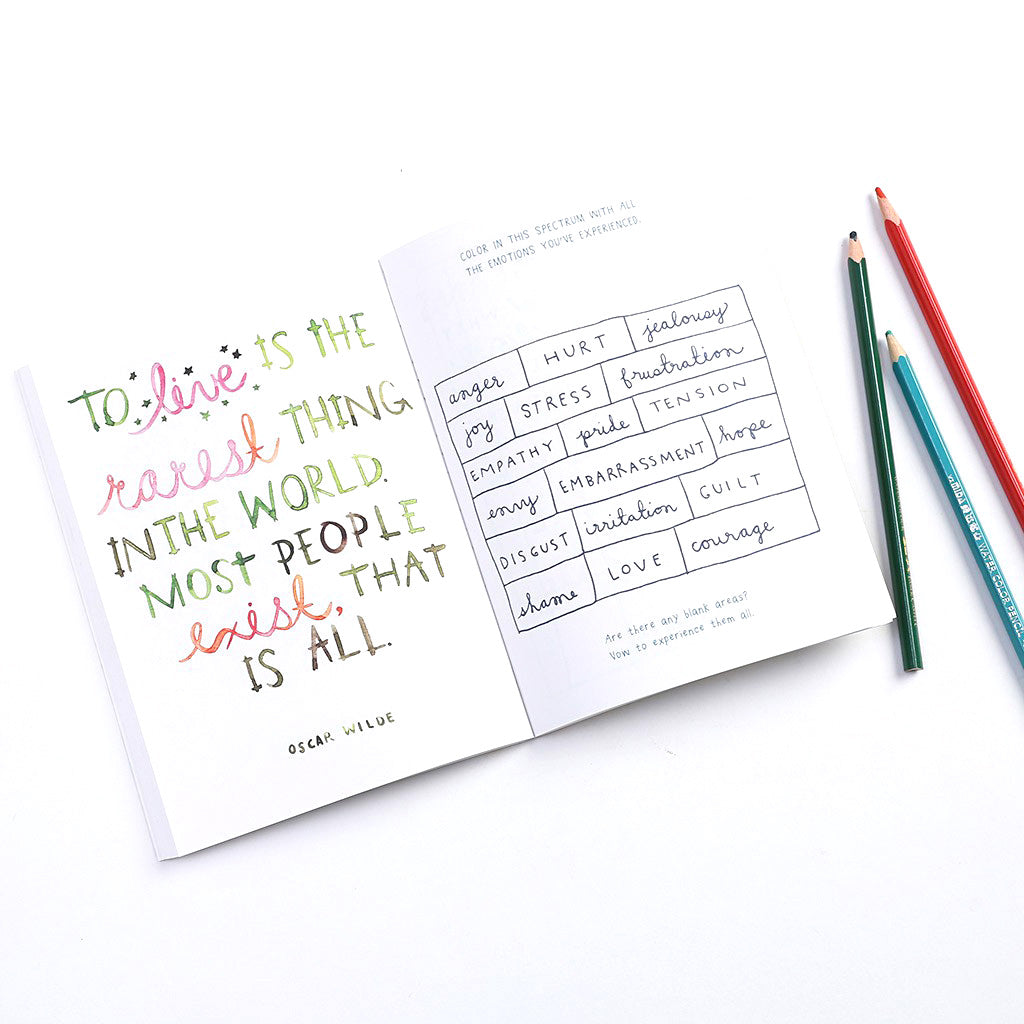 TO live IS THE
rarest THING
IN THE WORLD.
MOST PEOPLE
exist, THAT
IS ALL.
OSCAR WILDE
COLOR IN THIS SPECTRUM WITH ALL
THE EMOTIONS YOU'VE EXPERIENCED.
anger HURT jealousy
joy STRESS frustration
EMPATHY pride TENSION
envy EMBARRASSMENT hope
DISGUST irritation GUILT
shame LOVE courage
Are there any blank areas?
Vow to experience them all.
WATER COLOR PENCIL